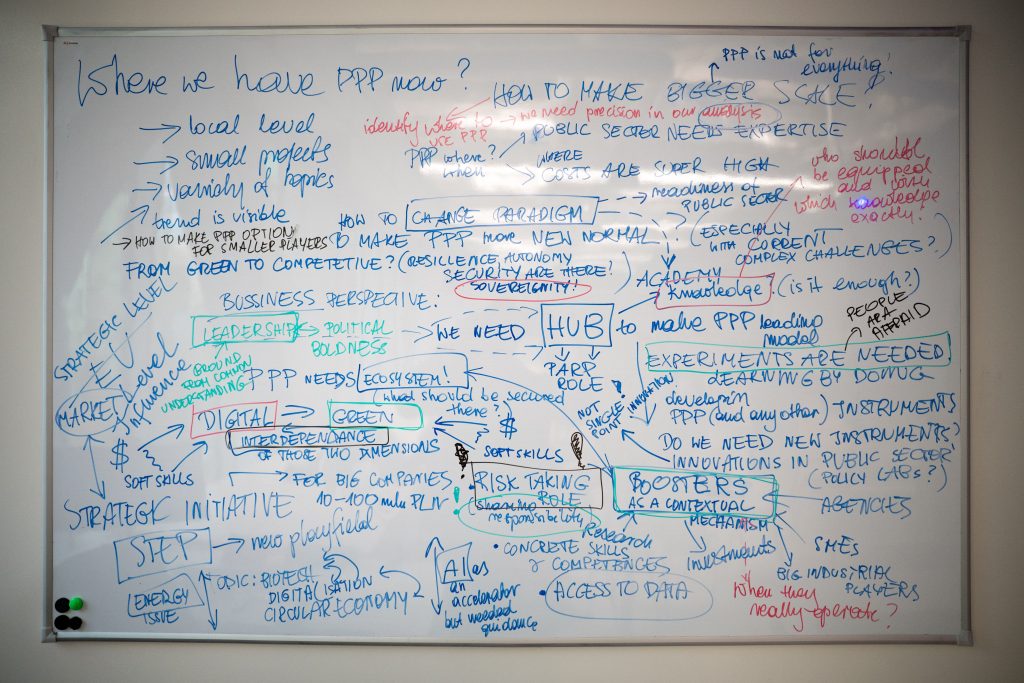 Where we have PPP now?
→ local level
→ small projects
→ variaty of topics
trend is visible
→ HOW TO MAKE PPP OPTION
FOR SMALLER PLAYERS
PPP IS NOT FOR
everything!
HOW TO MAKE BIGGER SCALE?
identify where to
use PPP
→ we need precision in our analysis
PPP where?
when
PUBLIC SECTOR NEEDS EXPERTISE
WHERE
COSTS ARE SUPER HIGH
→ readiness of
PUBLIC SECTOR
who should
be equipped
and with
which knowledge
exactly?
HOW TO CHANGE PARADIGM
TO MAKE PPP more NEW NORMAL?
(ESPECIALLY
WITH CURRENT
COMPLEX CHALLENGES?)
FROM GREEN TO COMPETETIVE? (RESILLENCE AUTONOMY
SECURITY ARE THERE?)
SOVEREIGNITY!
ACADEMY
Knowledge (is it enough?)
BUSSINESS PERSPECTIVE:
LEADERSHIP
POLITICAL
BOLDNESS
→ WE NEED HUB to make PPP leading
model
PARP
ROLE
PEOPLE
ARE
AFFRAID
GROUND
FROM COMMON
UNDERSTANDING
EXPERIMENTS ARE NEEDED
LEARNING BY DOING
PPP NEEDS ECOSYSTEM!
(what should be secured
there?)
STRATEGIC LEVEL
EU
MARKET
Level
Influence
$
SOFT SKILLS
DIGITAL
GREEN
INTERDEPENDANCE
OF THOSE TWO DIMENSIONS
$
SOFT SKILLS
NOT
SINGLE
POINT
INNOVATION
PPP (and any other) INSTRUMENTS
DO WE NEED NEW INSTRUMENTS?
INNOVATIONS IN PUBLIC SECTOR
(POLICY LABs?)
→ FOR BIG COMPANIES
10-100 mln PLN
RISK TAKING
ROLE
sharing
responsibility
BOOSTERS
AS A CONTEXTUAL
MECHANISM
AGENCIES
SMEs
BIG INDUSTRIAL
PLAYERS
investments
When they
really operate?
STRATEGIC INITIATIVE
STEP → new playfield
ENERGY
ISSUE
BIOTECH
DIGITALISATION
CIRCULAR ECONOMY
AI as
an
accelerator
but needed
guidance
Research
• CONCRETE SKILLS
& COMPETENCES
• ACCESS TO DATA